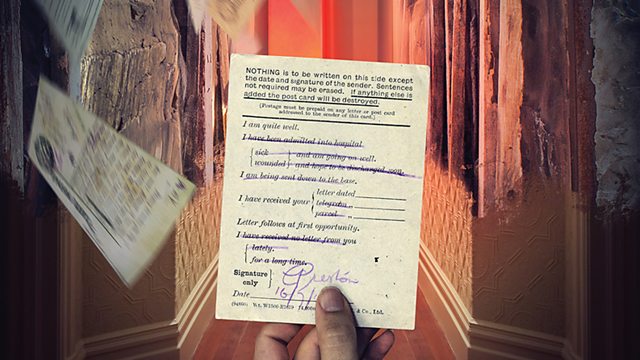 NOTHING is to be written on this side except
the date and signature of the sender. Sentences
not required may be erased. If anything else is
added the post card will be destroyed.
(Postage must be prepaid on any letter or post card
addressed to the sender of this card.)
I am quite well.
I have been admitted into hospital
sick and am going on well.
wounded and hope to be discharged soon.
I am being sent down to the base.
letter dated
I have received your telegram „
parcel „
Letter follows at first opportunity.
I have received no letter from you
lately.
for a long time.
Signature
only
Preston
Date 16/7/
& Co., Ltd.